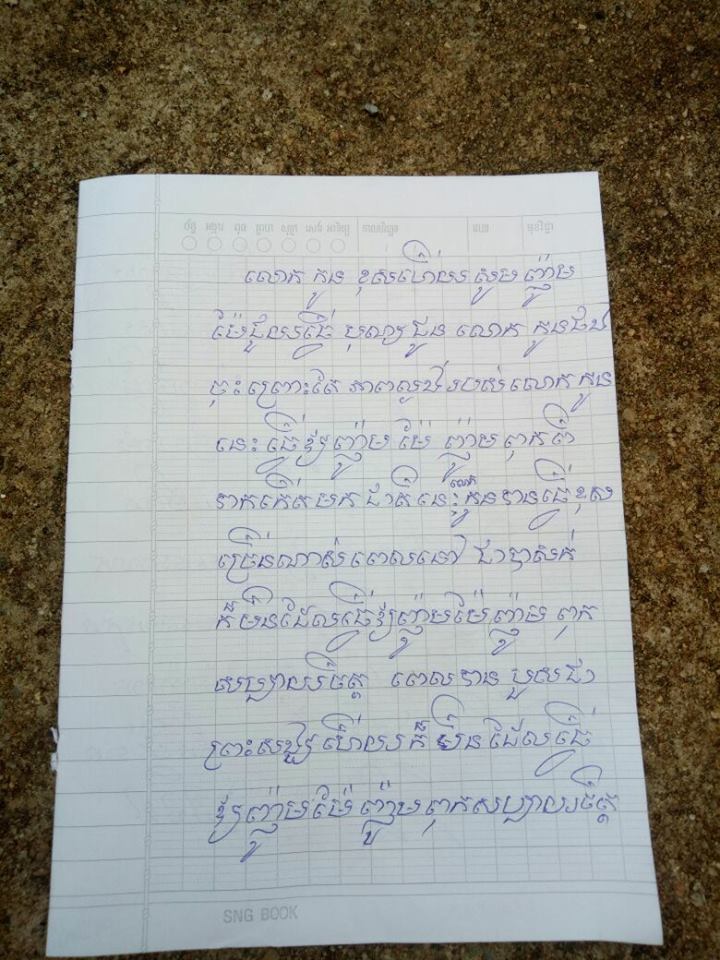 ច័ន្ទ អង្គារ ពុធ ព្រហ សុក្រ សៅរ៍ អាទិត្យ
លោក កូន ខុសហើយ សូម ញ៉ោម
ម៉ែជួយធ្វើ បុណ្យ ជូន លោក កូនផង
ចុះ ព្រោះតែ ភាពល្ងង់របស់ លោក កូន
នេះ ធ្វើឱ្យ ញ៉ោម ម៉ែ ញ៉ោម ពុកពិ
បាកកើតមក ជាតិនេះ លោក កូនបានធ្វើខុស
ច្រើនណាស់ ពេលនៅ ជាបាសក់
ក៏មិនដែលធ្វើឱ្យញ៉ោមម៉ែញ៉ោម ពុក
សប្បាយចិត្ត ពេលបាន បួសជា
ព្រះសង្ឃ ហើយ ក៏ មិនដែលធ្វើ
ឱ្យ ញ៉ោមម៉ែ ញ៉ោម ពុកសប្បាយចិត្ត
SNG BOOK